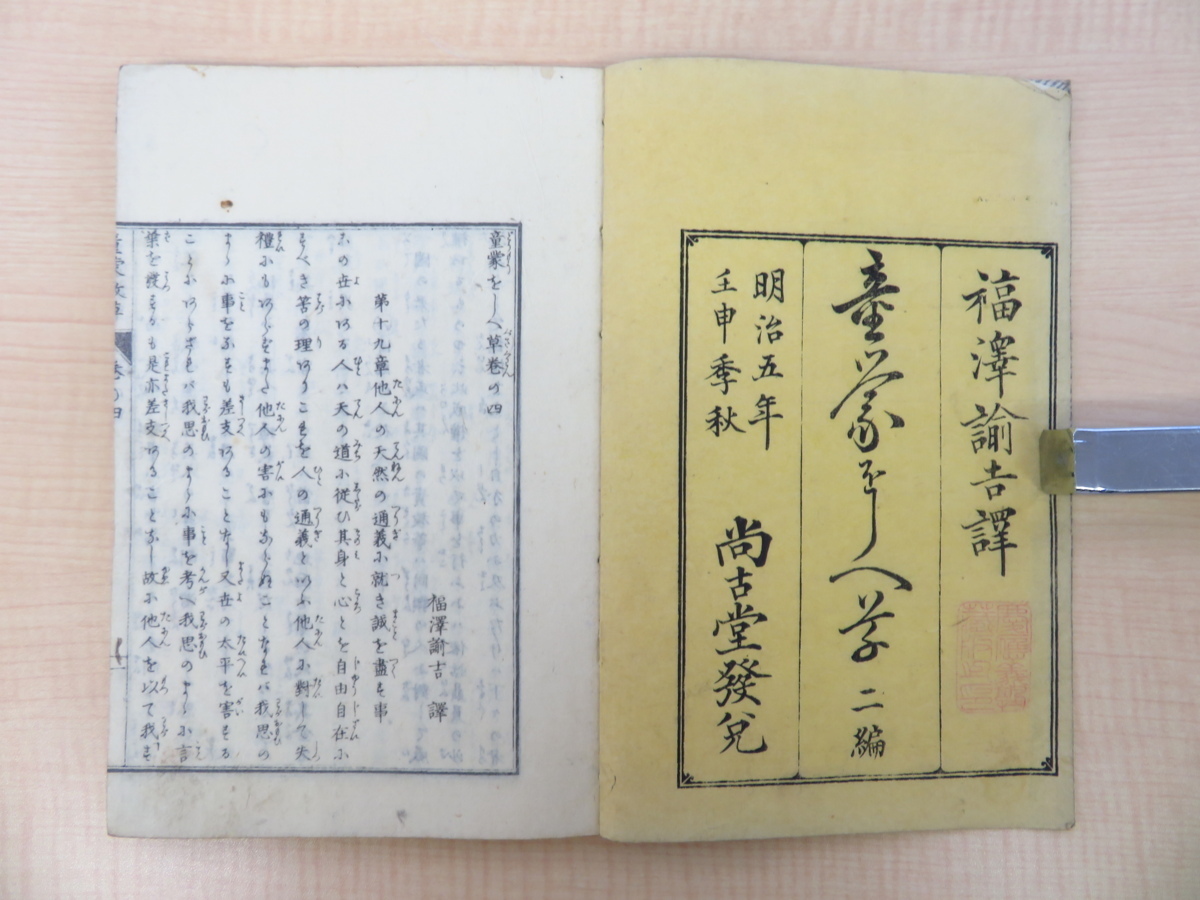 福澤諭吉譯
童蒙をしへ草 二編
明治五年
壬申季秋
尚古堂發兌
童蒙をしへ草巻の四
福澤諭吉 譯
第十九章他人の天然の通義に就き誠を盡す事
この世にある人ハ天の道に從ひ其身と心とを自由自在に
すべき筈の理あることを人の通義といふ他人に對して失
禮にもあらずまた他人の害にもならぬことなれバ我思の
まゝに事をなすも差支あることなし又世の太平を害する
ことにあらざれバ我思のまゝに事を考へ我思のまゝに言
葉を發するも是亦差支あることなし故に他人を以て我す